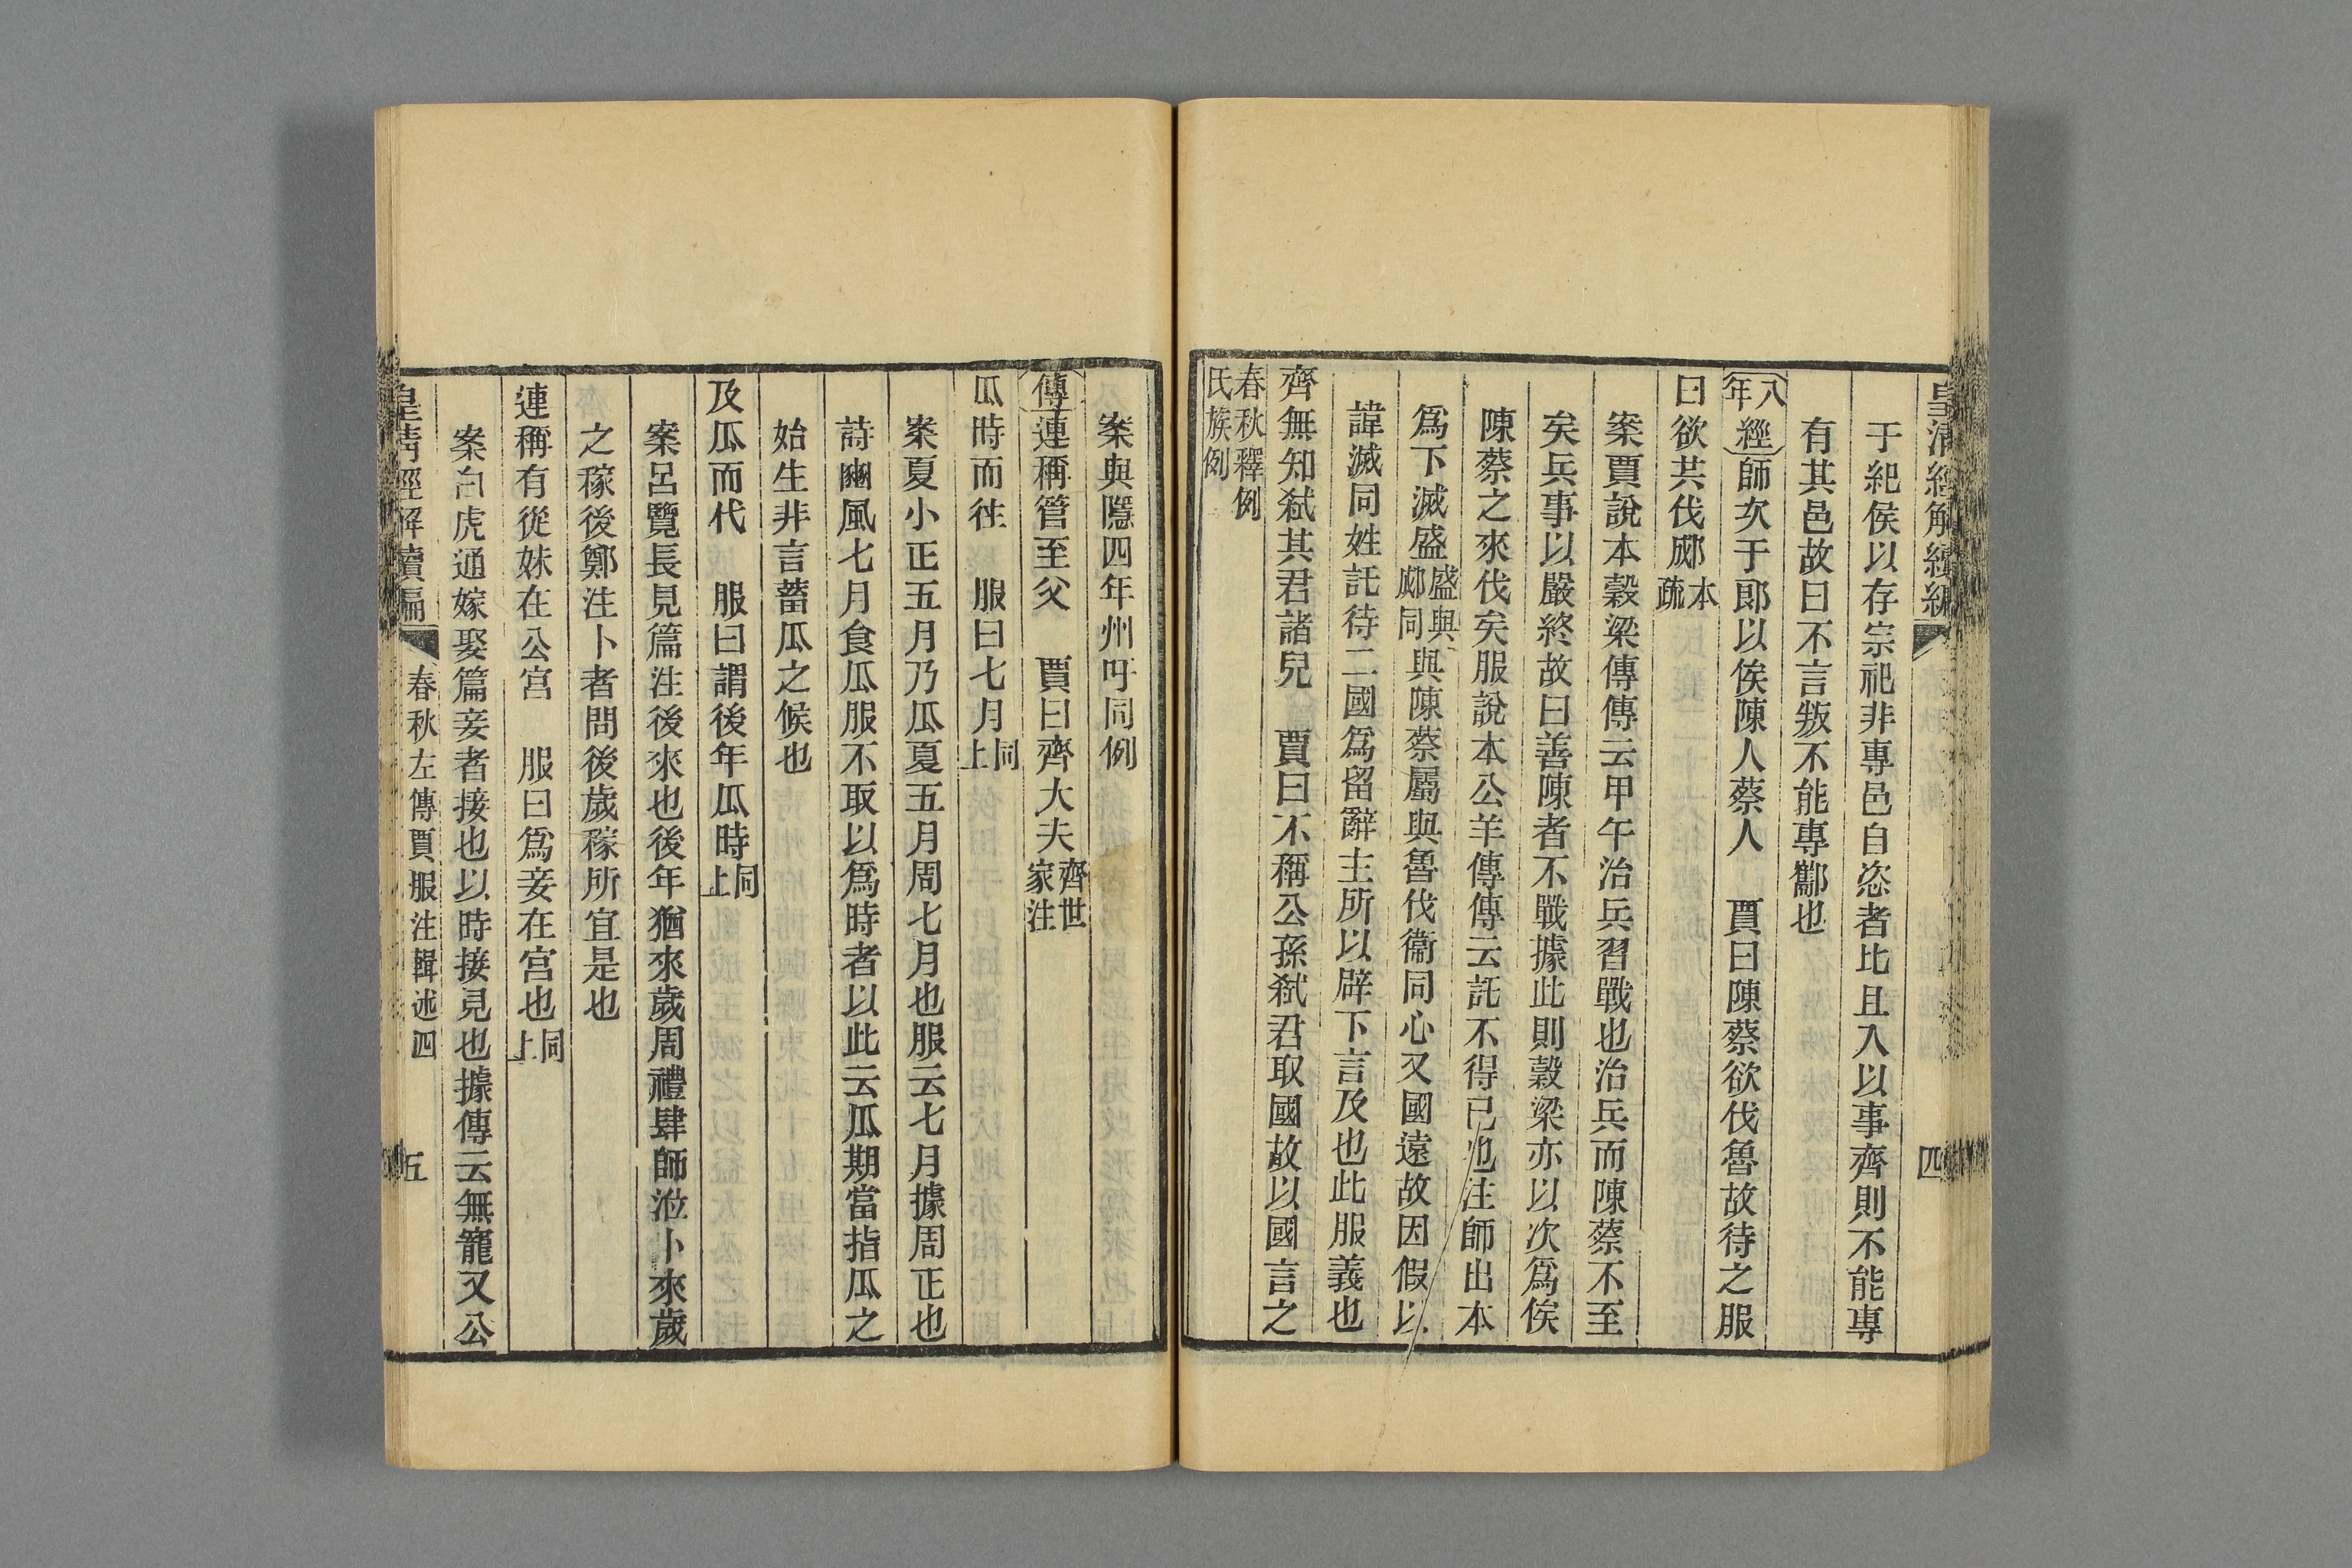 皇清經解續編
四
于紀侯以存宗祀非專邑自恣者比且入以事齊則不能專
有其邑故曰不言叛不能專酅也
八年經師次于郎以俟陳人蔡人　賈曰陳蔡欲伐魯故待之服
曰欲共伐郕本疏
案賈說本穀梁傳傳云甲午治兵習戰也治兵而陳蔡不至
矣兵事以嚴終故曰善陳者不戰據此則穀梁亦以次為俟
陳蔡之來伐矣服說本公羊傳傳云託不得已也注師出本
為下滅盛盛與郕同與陳蔡屬與魯伐衞同心又國遠故因假以
諱滅同姓託待二國為留辭主所以辟下言及也此服義也
齊無知弑其君諸兒　賈曰不稱公孫弑君取國故以國言之
春秋釋例氏族例
案與隱四年州吁同例
傳連稱管至父　賈曰齊大夫齊世家注
瓜時而往　服曰七月同上
案夏小正五月乃瓜夏五月周七月也服云七月據周正也
詩豳風七月食瓜服不取以為時者以此云瓜期當指瓜之
始生非言蓄瓜之候也
及瓜而代　服曰謂後年瓜時同上
案呂覽長見篇注後來也後年猶來歲周禮肆師涖卜來歲
之稼後鄭注卜者問後歲稼所宜是也
連稱有從妹在公宮　服曰為妾在宮也同上
案白虎通嫁娶篇妾者接也以時接見也據傳云無寵又公
皇清經解續編
春秋左傳賈服注輯述四
五